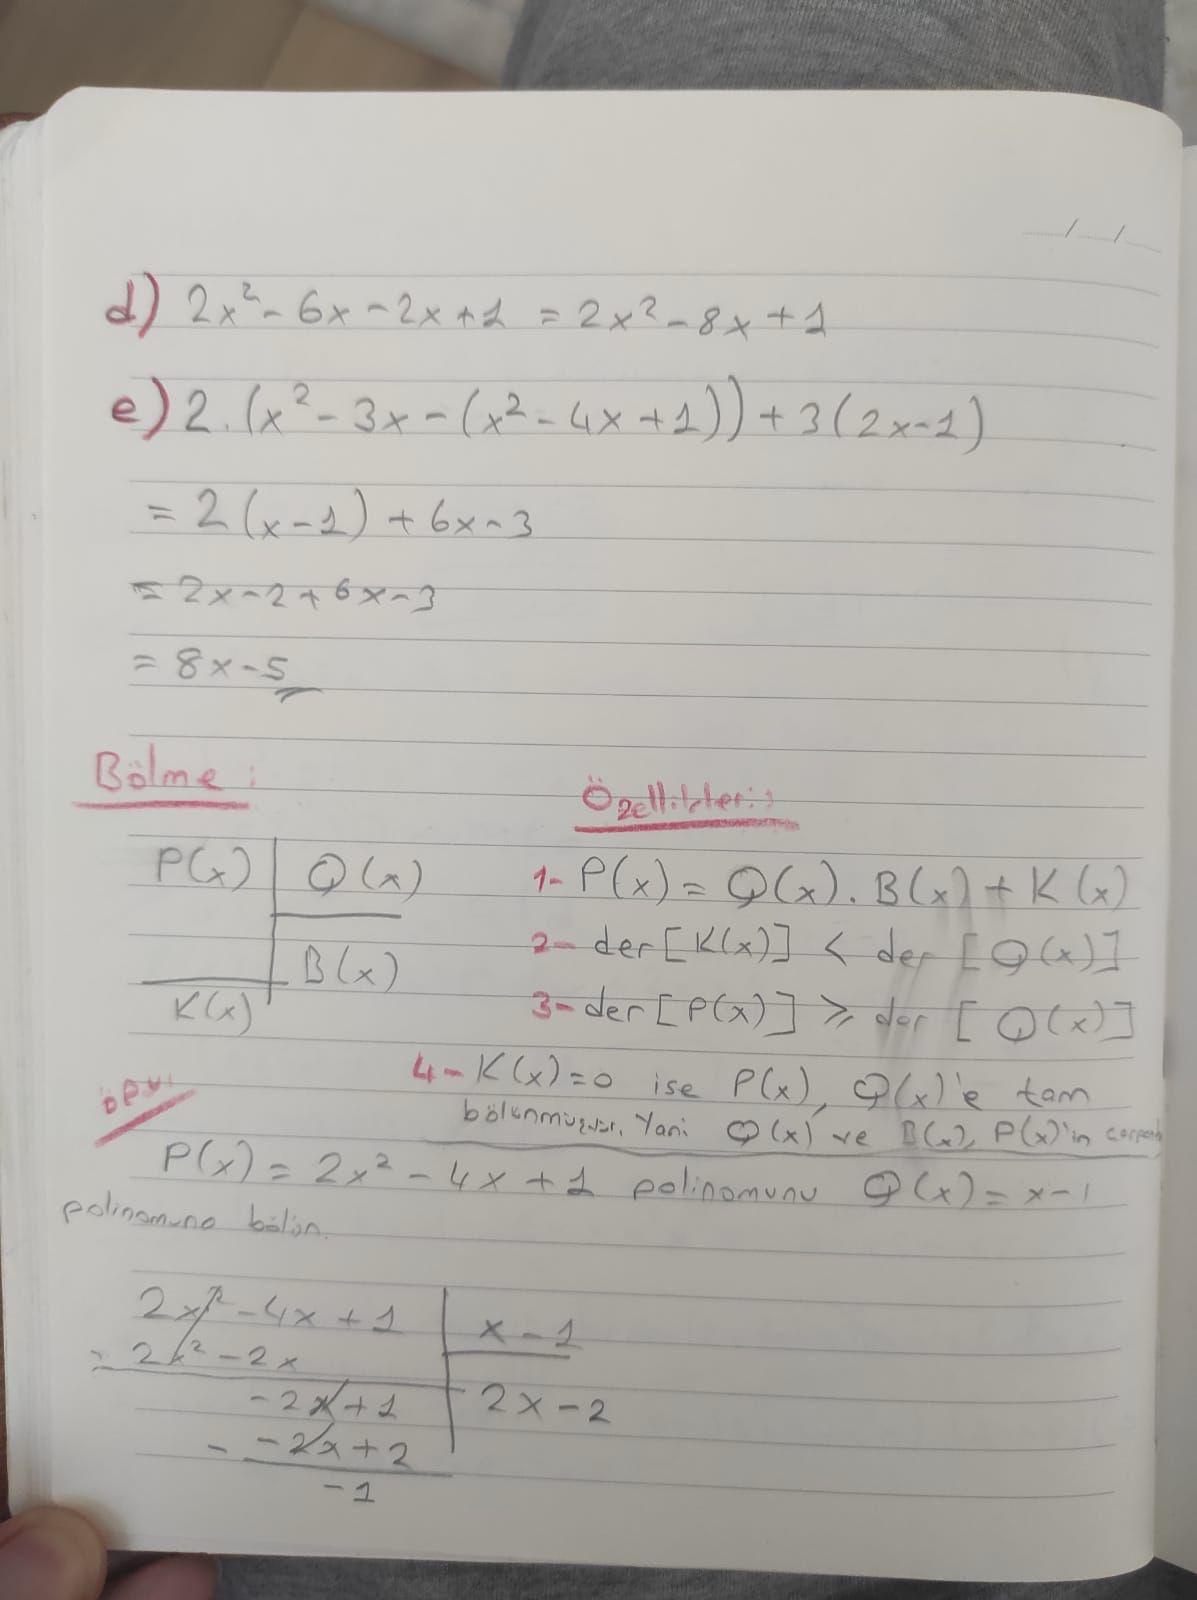 d) 2x² - 6x - 2x + 1 = 2x² - 8x + 1
e) 2.(x² - 3x - (x² - 4x + 1)) + 3(2x-1)
= 2(x-1) + 6x - 3
= 2x - 2 + 6x - 3
= 8x - 5
Bölme:
P(x) Q(x)
B(x)
K(x)
Özellikleri:
1- P(x) = Q(x). B(x) + K(x)
2- der [K(x)] < der [Q(x)]
3- der [P(x)] ≥ der [Q(x)]
4- K(x)=0 ise P(x), Q(x)'e tam
bölünmüştür. Yani Q(x) ve B(x), P(x)'in
P(x) = 2x² - 4x + 1 polinomunu Q(x) = x-1
polinomuna bölün.
2x² - 4x + 1 x - 1
- 2x² - 2x
-2x + 1 2x - 2
- -2x + 2
-1